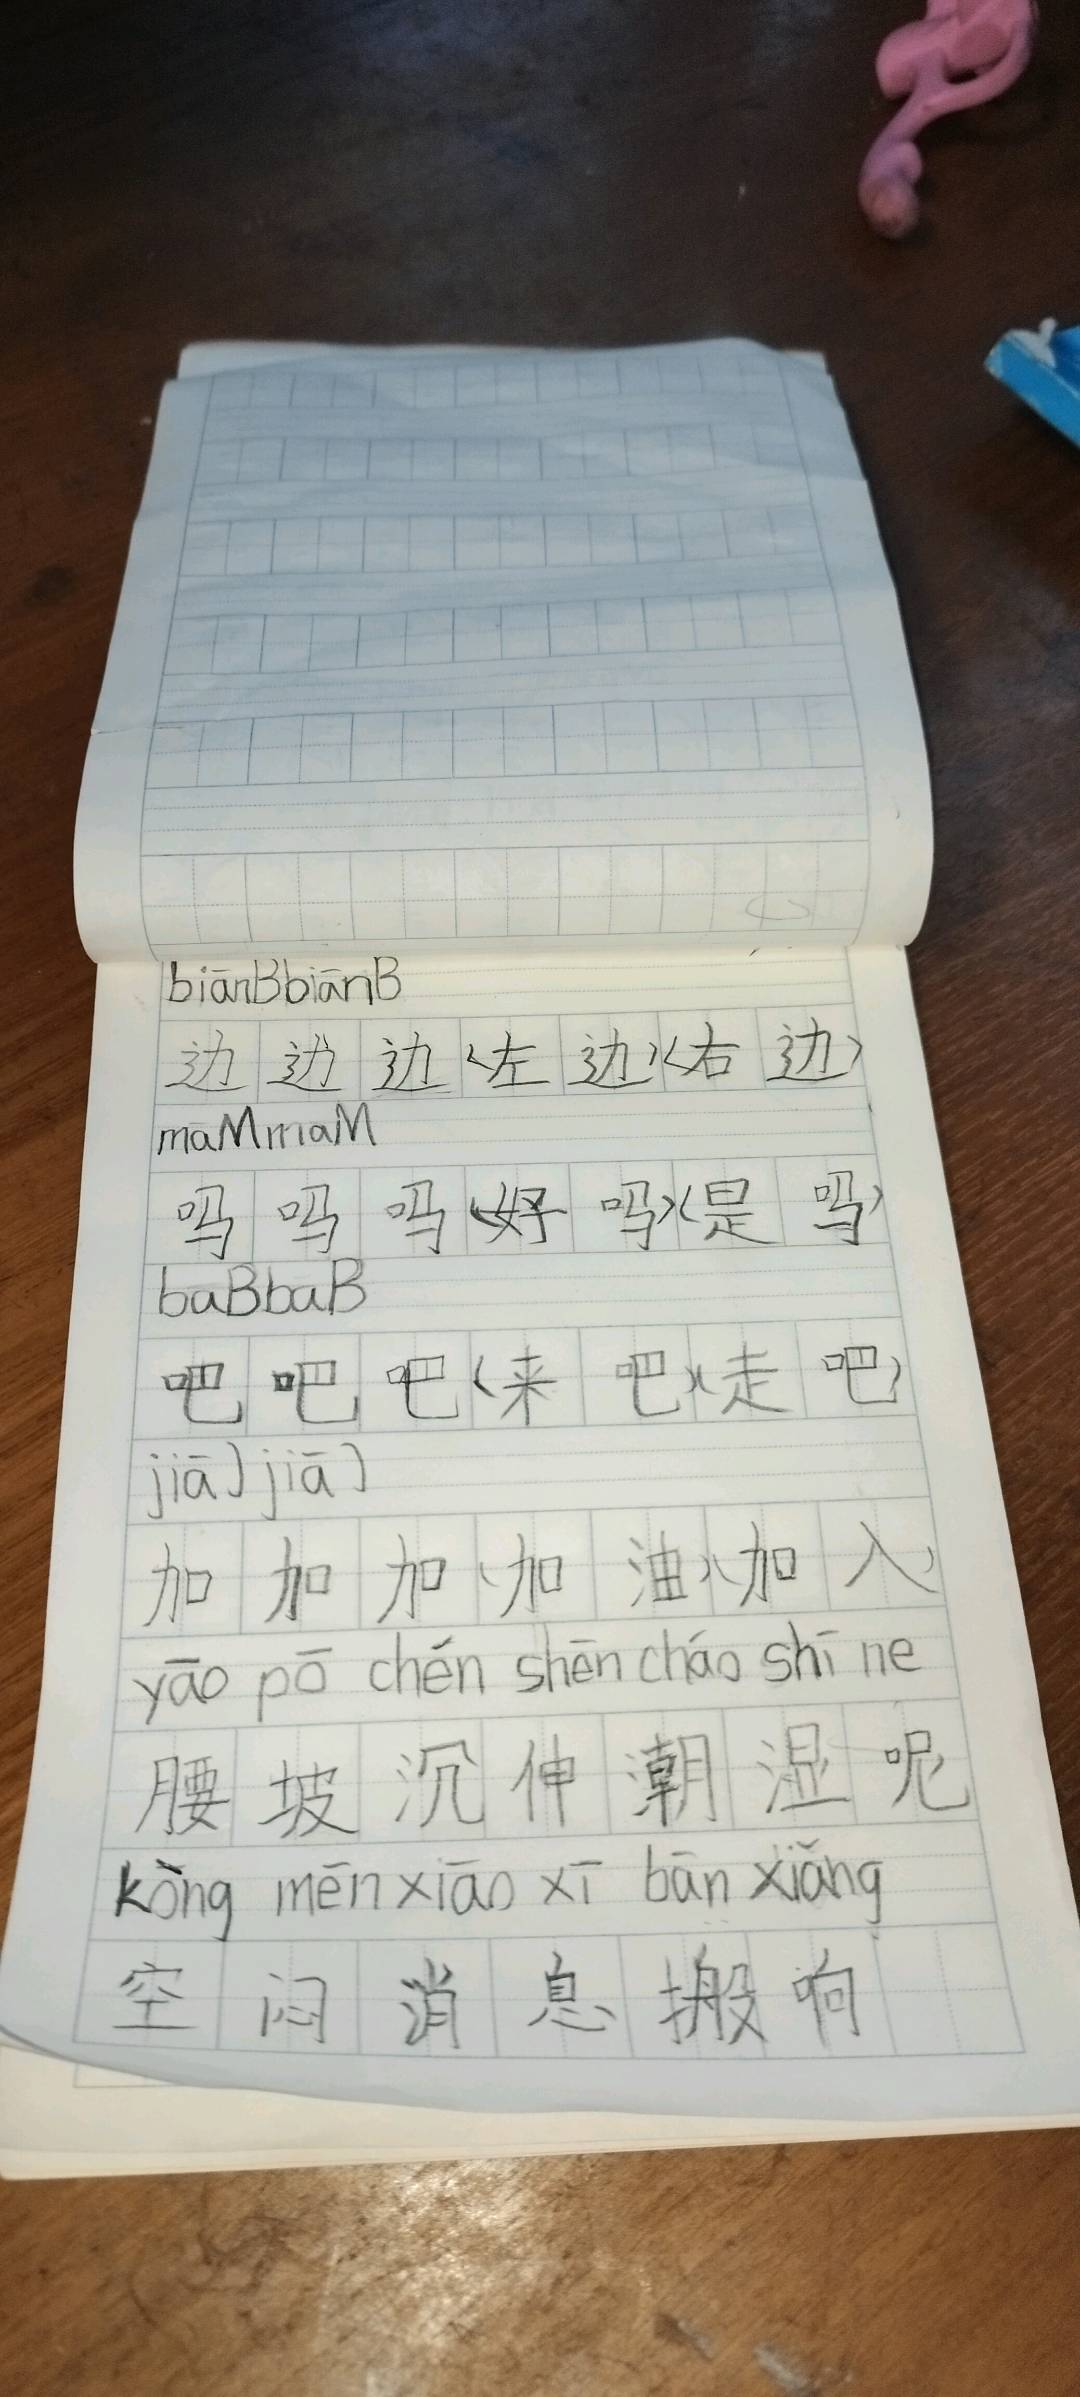 biānBbiānB
边边边(左边)(右边)
maMmaM
吗吗吗(好吗)(是吗)
baBbaB
吧吧吧(来吧)(走吧)
jiāJjiāJ
加加加(加油)(加入)
yāo pō chén shēn cháo shī ne
腰坡沉伸潮湿呢
kōng mēn xiāo xī bān xiǎng
空闷消息搬响